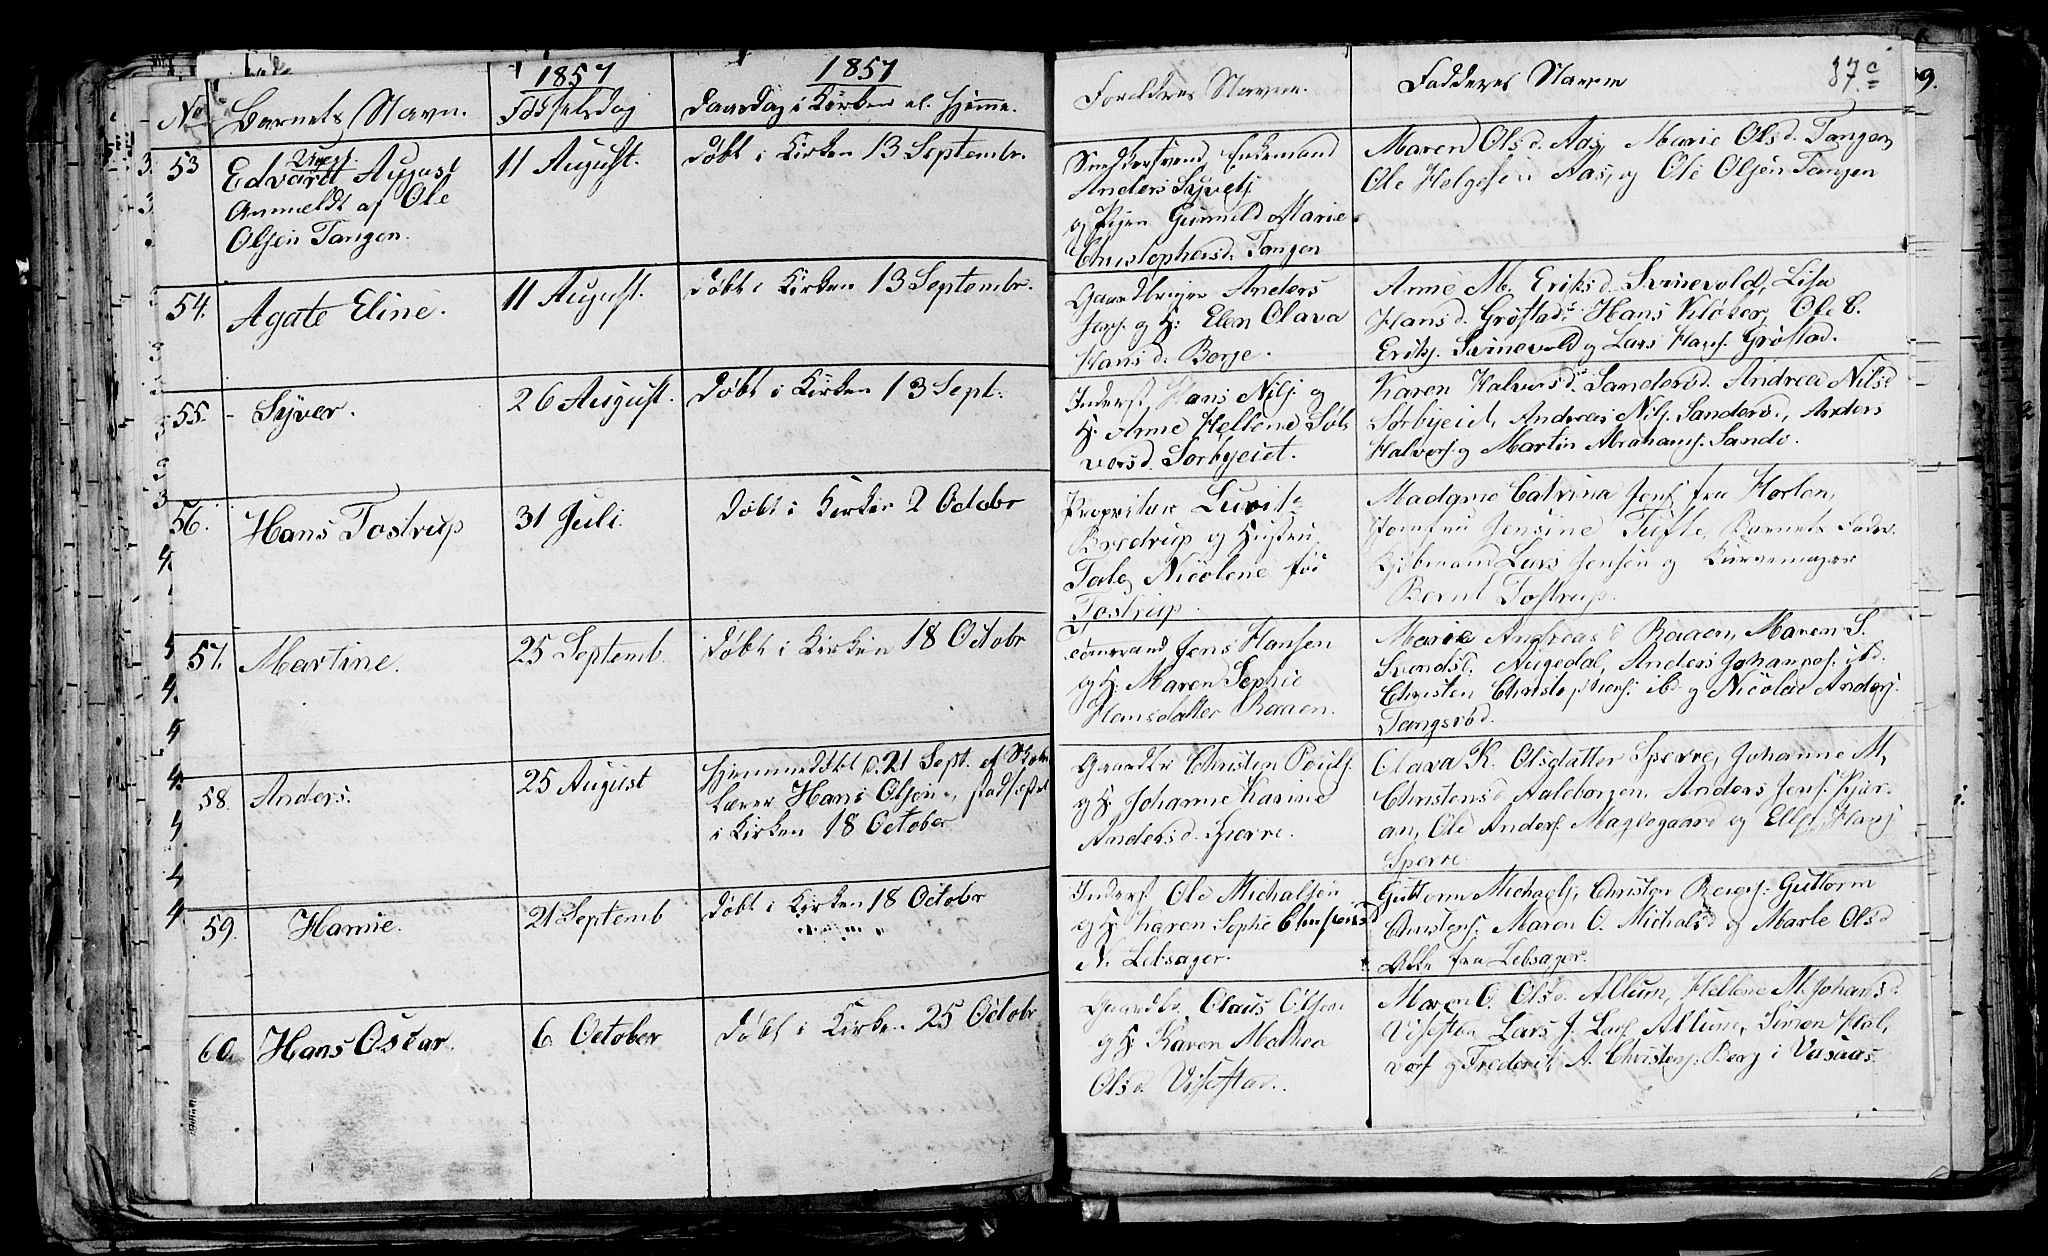 1857
1857
No
Barnets Navn.
Fødselsdag
Daasdag i Kirken el. Hjemme.
Forældres Navne.
Fadderes Navne
87c
53
Uægt.
Edvardt August
Anmeldt af Ole
Olsen Tangen.
11 August.
døbt i Kirken 13 Septembr.
Enkemand
Anders Syvers.
og Pigen Gunnild Marie
Christophersd. Tangen
Maren Olsd. Aas, Marie Olsd. Tangen,
Ole Helgesen Aas, og Ole Olsen Tangen
54.
Agate Eline.
11 August.
døbt i Kirken 13 Septembr.
Gaardbruger Anders
Jens. og H: Elen Olava
Hansd. Borge.
Anne M. Eriksd. Svinevold, Lisa
Hansd. Grøstad, Hans Kløker, Ole C.
Eriks. Svinevold og Lars Hans. Grøstad.
55.
Syver.
26 August.
døbt i Kirken 13 Sept.
Inderst Hans Nils. og
H. Anne Hellene Søl-
versd. Sørbyeiet.
Karen Halvorsd. Sanderød. Andrea Nilsd
Sørbyeiet, Andreas Nils. Sanderød, Anders
Halvors. og Martin Abrahams. Sande.
56.
Hans Tostrup
31 Juli.
døbt i Kirken 2 Octobr
Proprietær
Bredrup og Hustru
Nicolene fød
Tostrup.
Madame Catrina Jens. fra Horten,
Jomfru Jensine Tufte, Barnets Fader
Kjøbmand Lars Jensen og
Bernt Tostrup.
57.
Martine.
25 Septemb.
døbt i Kirken 18 Octobr
Jens Hansen
og H. Maren Sophie
Hansdatter Raaen.
Marie Andreasd Raaen, Maren S.
Svendsd. Augedal, Anders Johannes. ibd.
Christen Christophers. ibd. og Nicolai Anders.
Tangsrød.
58.
Anders.
25 August
Hjemmedøbt d. 21 Sept. af Skole-
lærer Hans Olsen, stadfæstet
i Kirken 18 October
Gaardbr Christen Pouls.
og H Johanne Karine
Andersd. Sperre.
Olava K. Olsdatter Sperre, Johanne M.
Christensd Aaleborgen, Anders Jens.
Ole Anders. Maglegaard og Ellef Hans
Sperre
59.
Hanne.
21 Septemb
døbt i Kirken 18 Octobr
Inderst Ole Michalsen
og H Karen Sophie Christensd
N. Lebsager.
Guttorm Michaels, Christen Reiers. Guttorm
Christens. Maren O. Michalsd og Marte Olsd
Alle fra Lebsager.
60.
Hans Oscar.
6 October
døbt i Kirken 25 Octobr
Gaardbr. Olaus Olsen
og H Karen Mathea
Olsd.
Maren O. Olsd. Allum, Hellene M. Johansd.
Lars J. Allum, Simon Hal-
vors og Frederik A. Christens. Berg i Vasaas